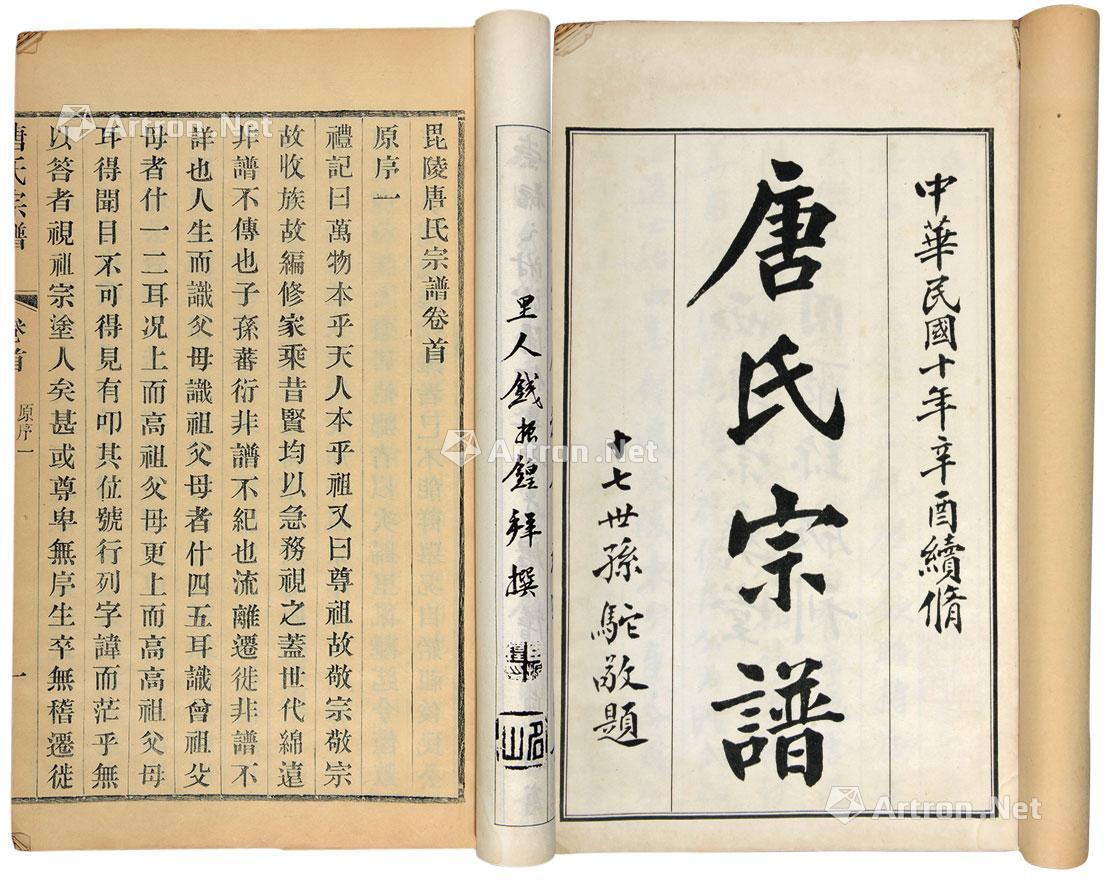 中華民國十年辛酉續脩
唐氏宗譜
十七世孫駝敬題
里人錢振鍠拜撰
名山
毘陵唐氏宗譜卷首
原序一
禮記曰萬物本乎天人本乎祖又曰尊祖故敬宗敬宗
故收族故編修家乘昔賢均以急務視之蓋世代綿遠
非譜不傳也子孫蕃衍非譜不紀也流離遷徙非譜不
詳也人生而識父母識祖父母者什四五耳識曾祖父
母者什一二耳况上而高祖父母更上而高高祖父母
耳得聞目不可得見有叩其位號行列字諱而茫乎無
以答者視祖宗塗人矣甚或尊卑無序生卒無稽遷徙
唐氏宗譜
卷首
原序一
一
Artron.Net
Artron.Net
Artron.Net
Artron.Net